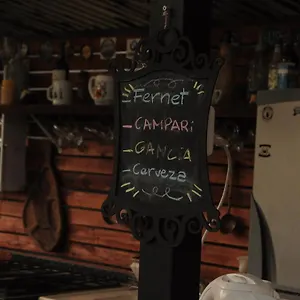 - Fernet
- CAMPARI
- GANCIA
- Cerveza